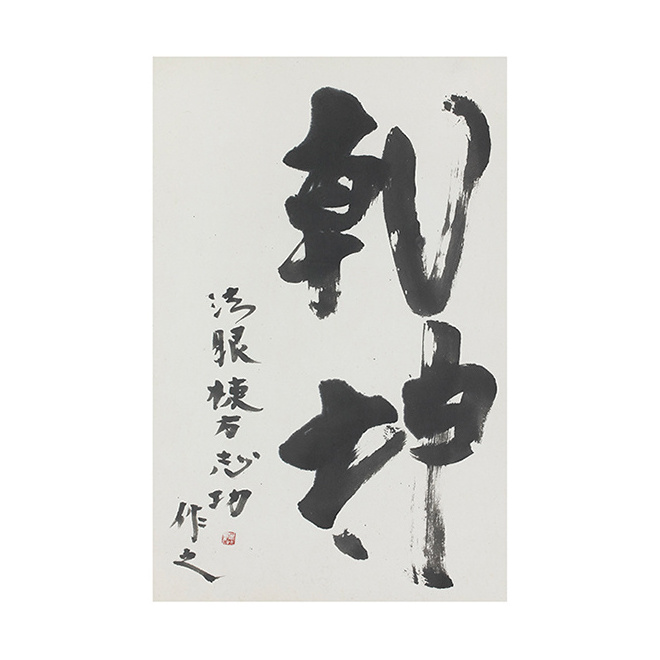 乾坤
法眼棟方志功
作之